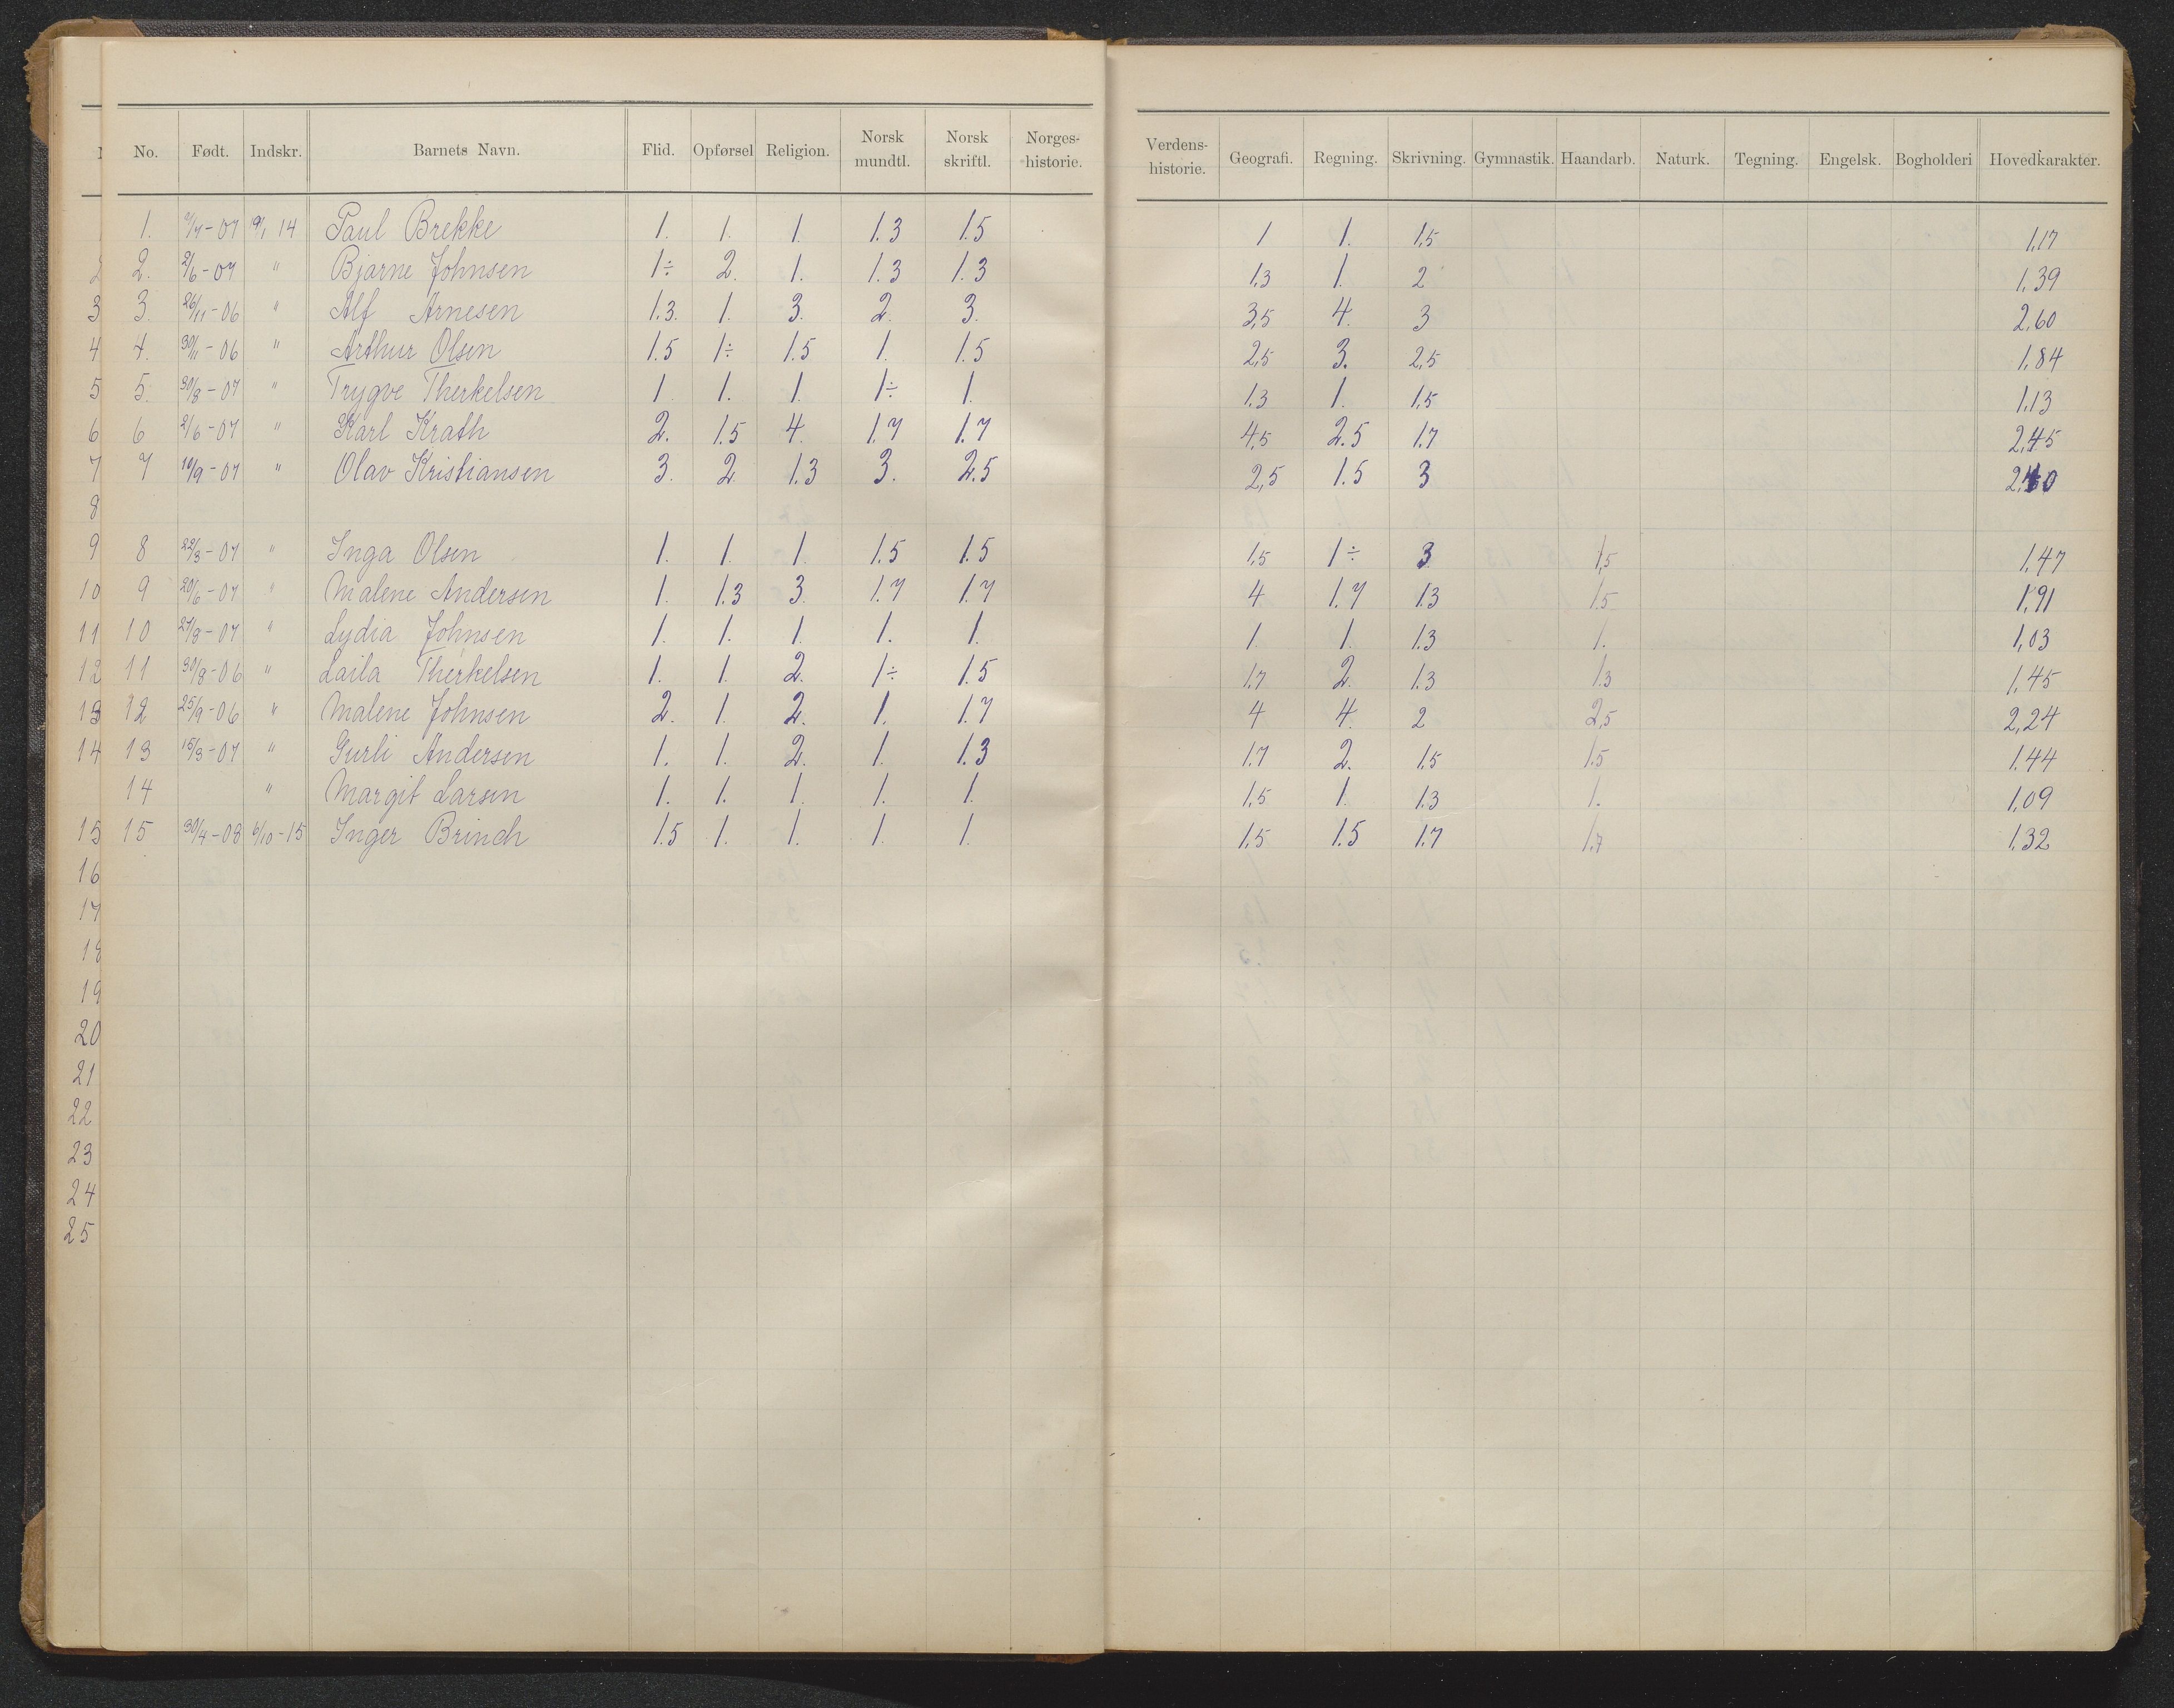 No. Født. Indskr. Barnets Navn. Flid. Opførsel Religion. Norsk mundtl. Norsk skriftl. Norges-historie. Verdens-historie. Geografi. Regning. Skrivning. Gymnastik. Haandarb. Naturk. Tegning. Engelsk. Bogholderi Hovedkarakter.
1. -07 9/1 14 Paul Brekke 1. 1. 1. 1.3 1.5 1 1. 1,5 1,17
2 2. 2/6-07 " Bjarne Johnsen 1÷ 2. 1. 1.3 1.3 1,3 1. 2 1,39
3 3. 26/11-06 " Alf Arnesen 1.3. 1. 3. 2. 3. 3,5 4. 3 2,60
4 4. 30/11-06 " Arthur Olsen 1.5 1÷ 1.5 1. 1.5 2,5 3. 2,5 1,84
5 5. 30/8-07 " Trygve Therkelsen 1 1. 1. 1÷ 1. 1.3 1. 1,5 1,13
6 6 2/6-07 " Karl Krath 2. 1.5 4. 1.7 1.7 4,5 2.5 1.7 2,45
7 7 10/9-07 " Olav Kristiansen 3. 2 1.3 3. 2.5 2,5 1.5 3
8
9 8 22/3-07 " Inga Olsen 1. 1. 1. 1.5 1.5 1,5 1÷ 3 1,5 1,47
10 9 20/6-07 " Malene Andersen 1. 1.3 3. 1.7 1.7 4 1.7 1.3 1.5 1,91
11 10 27/8-07 " Lydia Johnsen 1. 1. 1. 1. 1. 1. 1. 1.3 1. 1,03
12 11 30/8-06 " Laila Therkelsen 1. 1. 2. 1÷ 1.5 1,7 2. 1.3 1.3 1,45
13 12 25/9-06 " Malene Johnsen 2. 1. 2. 1. 1.7 4 4. 2 2,5 2,24
14 13 15/3-07 " Gurli Andersen 1. 1. 2. 1. 1.3 1.7 2. 1.5 1.5 1.44
14 " Margit Larsen 1. 1. 1. 1. 1. 1,5 1. 1.3 1. 1,09
15 15 30/4-08 6/10-15 Inger Brinch 1.5 1. 1. 1. 1. 1.5 1.5 1.7 1.7 1.32
16
17
18
19
20
21
22
23
24
25